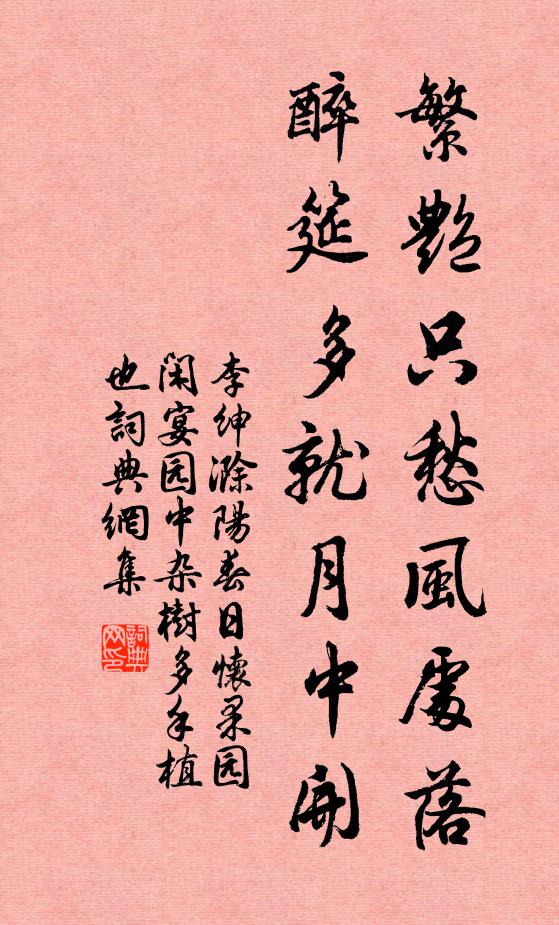 繁艷只愁風處落
醉筵多就月中開
李绅滁陽春日懷果园
闲宴园中杂樹多手植
也詞典網集
詞典网印